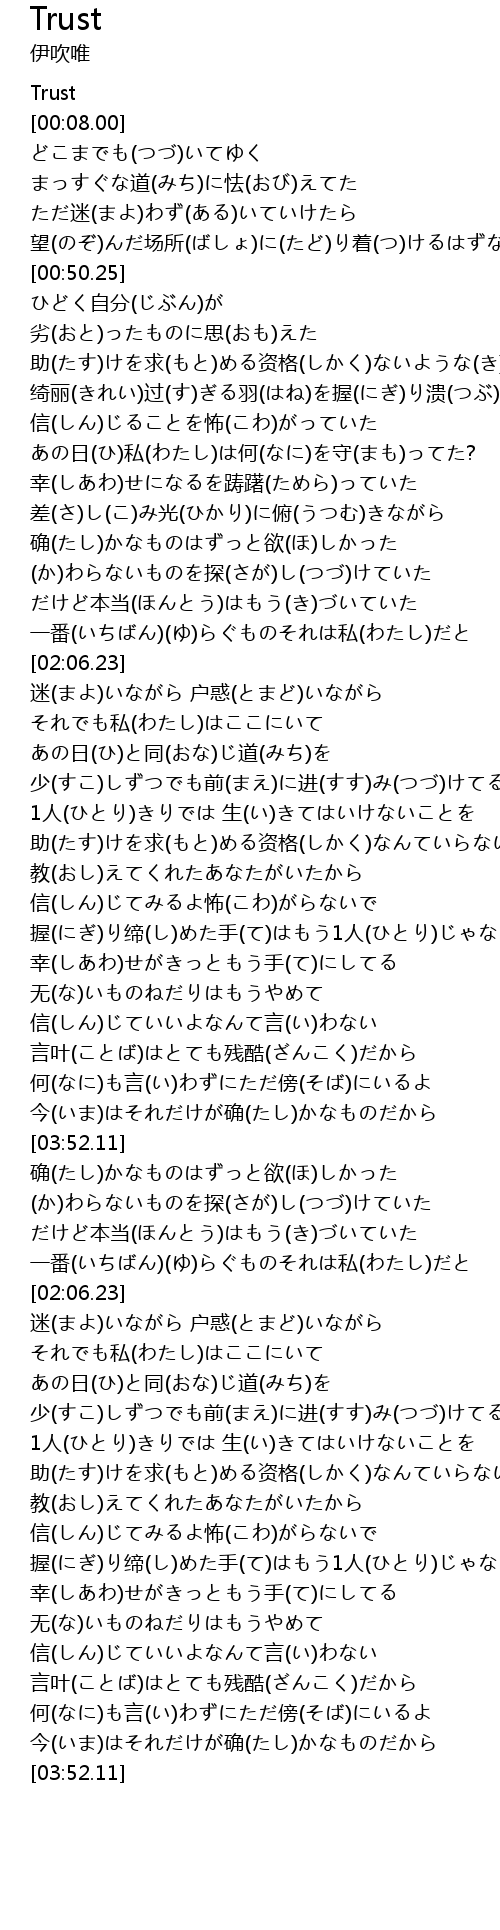 Trust
伊吹唯
Trust
[00:08.00]
どこまでも(つづ)いてゆく
まっすぐな道(みち)に怯(おび)えてた
ただ迷(まよ)わず(ある)いていけたら
望(のぞ)んだ场所(ばしょ)に(たど)り着(つ)けるはずな
[00:50.25]
ひどく自分(じぶん)が
劣(おと)ったものに思(おも)えた
助(たす)けを求(もと)める资格(しかく)ないような(き)
绮丽(きれい)过(す)ぎる羽(はね)を握(にぎ)り溃(つぶ)
信(しん)じることを怖(こわ)がっていた
あの日(ひ)私(わたし)は何(なに)を守(まも)ってた?
幸(しあわ)せになるを踌躇(ためら)っていた
差(さ)し(こ)み光(ひかり)に俯(うつむ)きながら
确(たし)かなものはずっと欲(ほ)しかった
(か)わらないものを探(さが)し(つづ)けていた
だけど本当(ほんとう)はもう(き)づいていた
一番(いちばん)(ゆ)らぐものそれは私(わたし)だと
[02:06.23]
迷(まよ)いながら 户惑(とまど)いながら
それでも私(わたし)はここにいて
あの日(ひ)と同(おな)じ道(みち)を
少(すこ)しずつでも前(まえ)に进(すす)み(つづ)けてる
1人(ひとり)きりでは 生(い)きてはいけないことを
助(たす)けを求(もと)める资格(しかく)なんていらない
教(おし)えてくれたあなたがいたから
信(しん)じてみるよ怖(こわ)がらないで
握(にぎ)り缔(し)めた手(て)はもう1人(ひとり)じゃな
幸(しあわ)せがきっともう手(て)にしてる
无(な)いものねだりはもうやめて
信(しん)じていいよなんて言(い)わない
言叶(ことば)はとても残酷(ざんこく)だから
何(なに)も言(い)わずにただ傍(そば)にいるよ
今(いま)はそれだけが确(たし)かなものだから
[03:52.11]
确(たし)かなものはずっと欲(ほ)しかった
(か)わらないものを探(さが)し(つづ)けていた
だけど本当(ほんとう)はもう(き)づいていた
一番(いちばん)(ゆ)らぐものそれは私(わたし)だと
[02:06.23]
迷(まよ)いながら 户惑(とまど)いながら
それでも私(わたし)はここにいて
あの日(ひ)と同(おな)じ道(みち)を
少(すこ)しずつでも前(まえ)に进(すす)み(つづ)けてる
1人(ひとり)きりでは 生(い)きてはいけないことを
助(たす)けを求(もと)める资格(しかく)なんていらない
教(おし)えてくれたあなたがいたから
信(しん)じてみるよ怖(こわ)がらないで
握(にぎ)り缔(し)めた手(て)はもう1人(ひとり)じゃな
幸(しあわ)せがきっともう手(て)にしてる
无(な)いものねだりはもうやめて
信(しん)じていいよなんて言(い)わない
言叶(ことば)はとても残酷(ざんこく)だから
何(なに)も言(い)わずにただ傍(そば)にいるよ
今(いま)はそれだけが确(たし)かなものだから
[03:52.11]